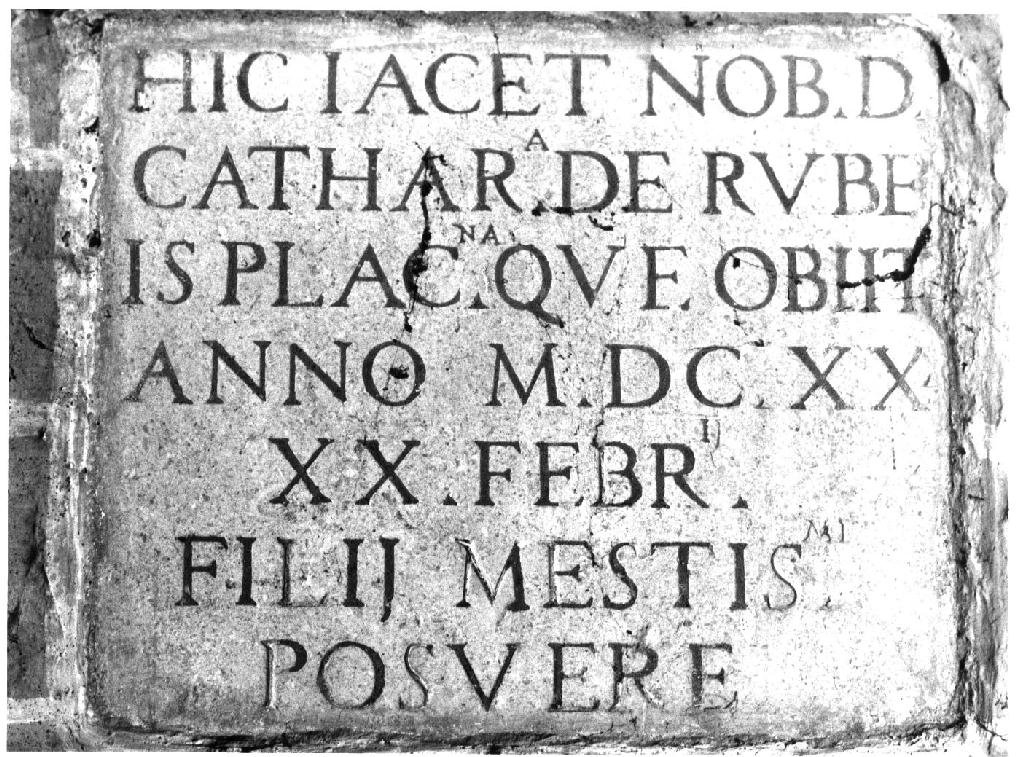 HIC IACET NOB. D.
CATHAR.ᴬ DE RVBE
IS PLAC.ᴺᴬ QVE. OBIIT
ANNO M.DC.XX
XX. FEBR.ᴵᴶ
FILIJ MESTISˢᴹᴵ
POSVERE